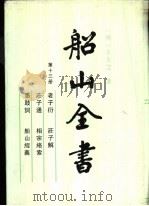 船山全書
第十三册
老子衍　莊子解
莊子通　相宗絡索
愚鼓詞　船山經義